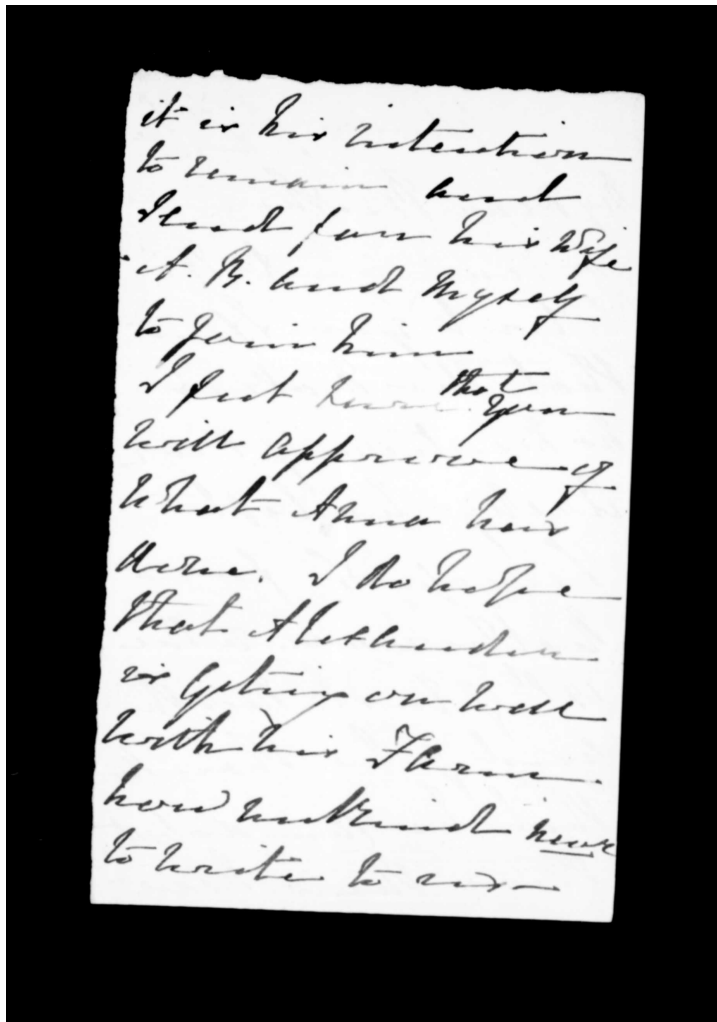 it is his intention
to remain and
send for his Wife
A. B. and Myself
to join him
I feel sure that you
will approve of
What Anna has
done. I do hope
that Alexander
is Geting on well
with his Farm.
how unkind never
to write to us—